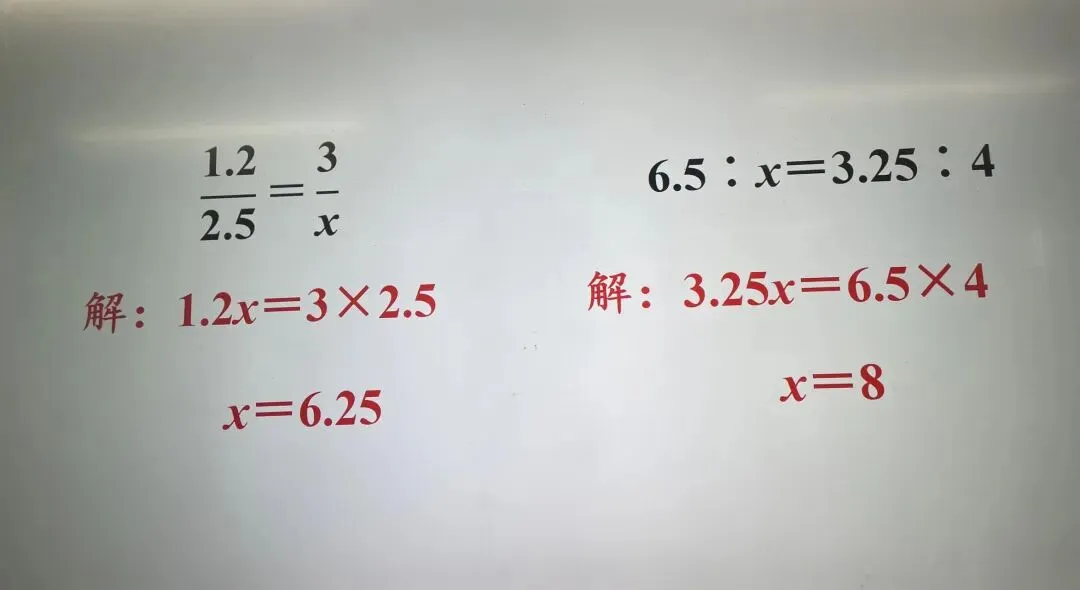 1.2/2.5＝3/x
解：1.2x＝3×2.5
x＝6.25
6.5∶x＝3.25∶4
解：3.25x＝6.5×4
x＝8